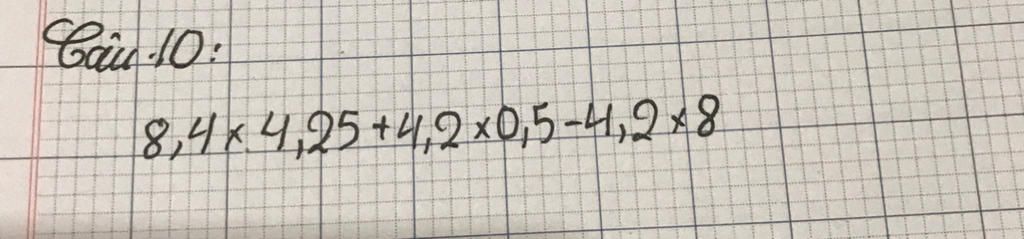 Câu 10:
8,4 × 4,25 + 4,2 × 0,5 - 4,2 × 8